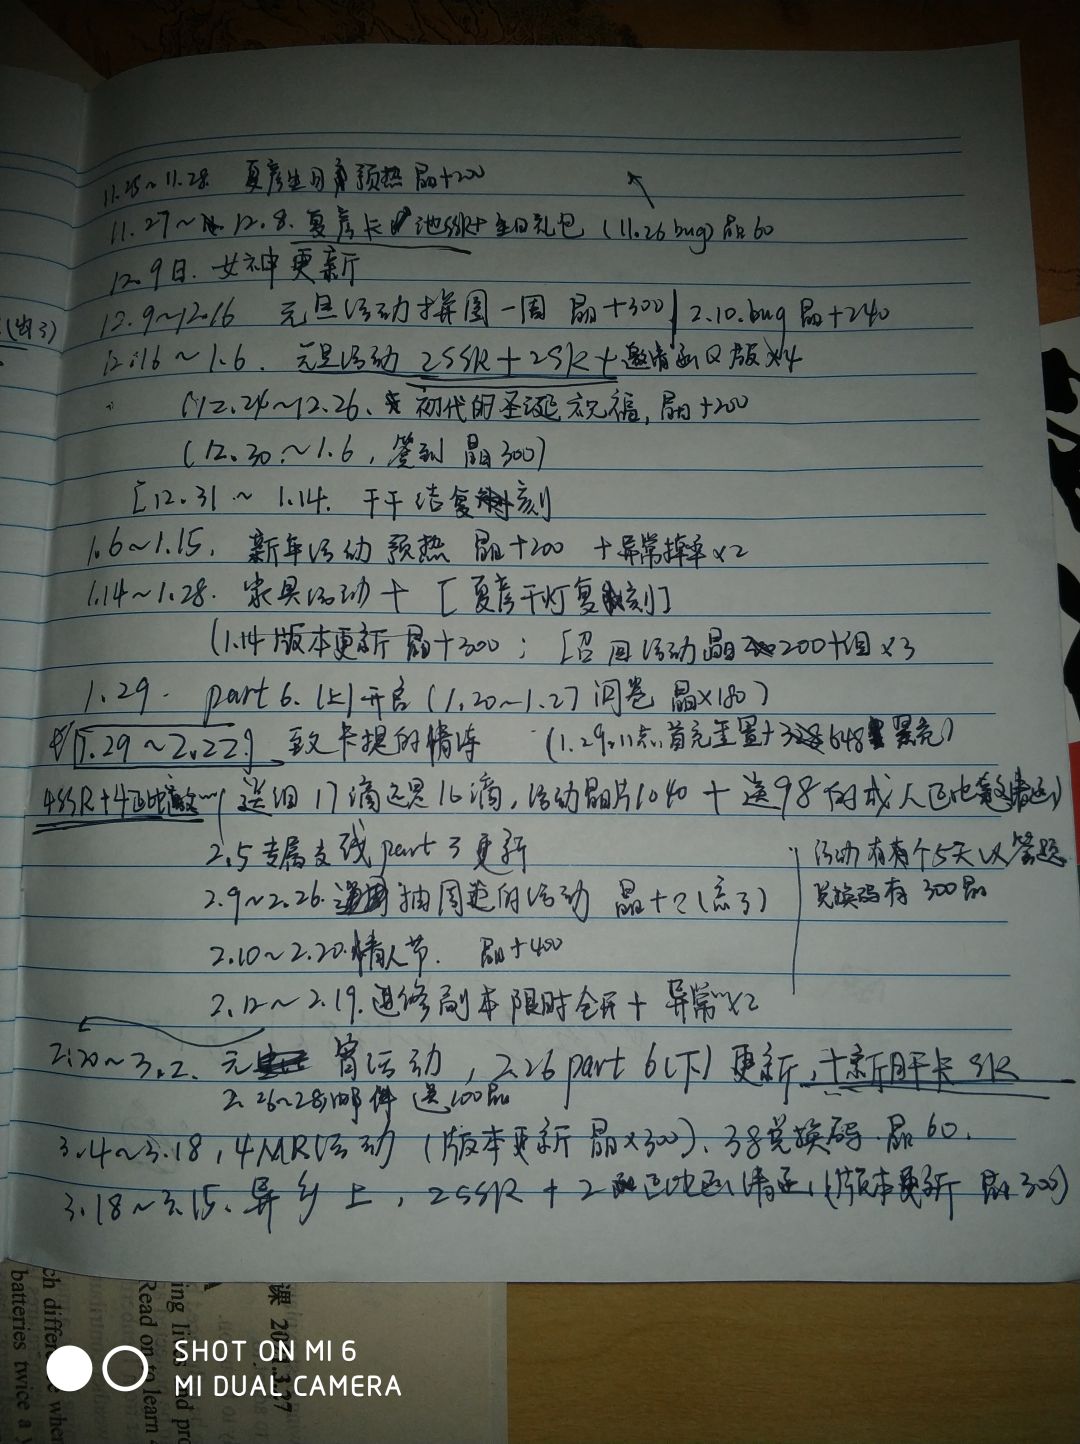 11.25~11.28. 夏彦生日预热 晶+200
11.27~12.8. 夏彦卡池SSR+生日礼包 (11.26 bug) 晶60
12.9日. 女神更新
12.9~12.16 元旦活动拼图一周 晶+300 12.10.bug 晶+240
12.16~1.6. 元旦活动 2SSR+2SR+邀请函Q版×4
(12.24~12.26. 初代的圣诞祝福, 晶+200
(12.30~1.6, 签到 晶300)
[12.31~1.14. 千千结复刻]
1.6~1.15. 新年活动 预热 晶+200 +异常掉率×2
1.14~1.28. 家具活动+[夏彦千灯复刻]
(1.14版本更新 晶+300; [召回活动晶200+泪×3
1.29. part 6.(上)开启 (1.20~1.27 问卷 晶×180)
[1.29~2.22] 致卡提的情诗 (1.29.11点首充重置+328 648 累充)
4SSR+4 送泪17滴还是16滴, 活动晶片1040+送98的成人
2.5 专属支线part 3 更新
活动有有个5天以答题
2.9~2.26. 抽周边的活动 晶+?(忘了)
兑换码有300晶
2.10~2.20.情人节. 晶+400
2.12~2.19.进修副本限时全开+异常×2
2.20~3.2. 元宵活动, 2.26 part 6(下)更新, +新月开卡 SR
2.26~28邮件送100晶
3.4~3.18, 4MR活动 (版本更新 晶×300). 38兑换码.晶60.
3.18~3.15. 异乡上, 2SSR+2 (版本更新 晶300)
课 20 .3.27
ing li d pro
Read on to learn
ch differe e wher
batteries twice a y
SHOT ON MI 6
MI DUAL CAMERA